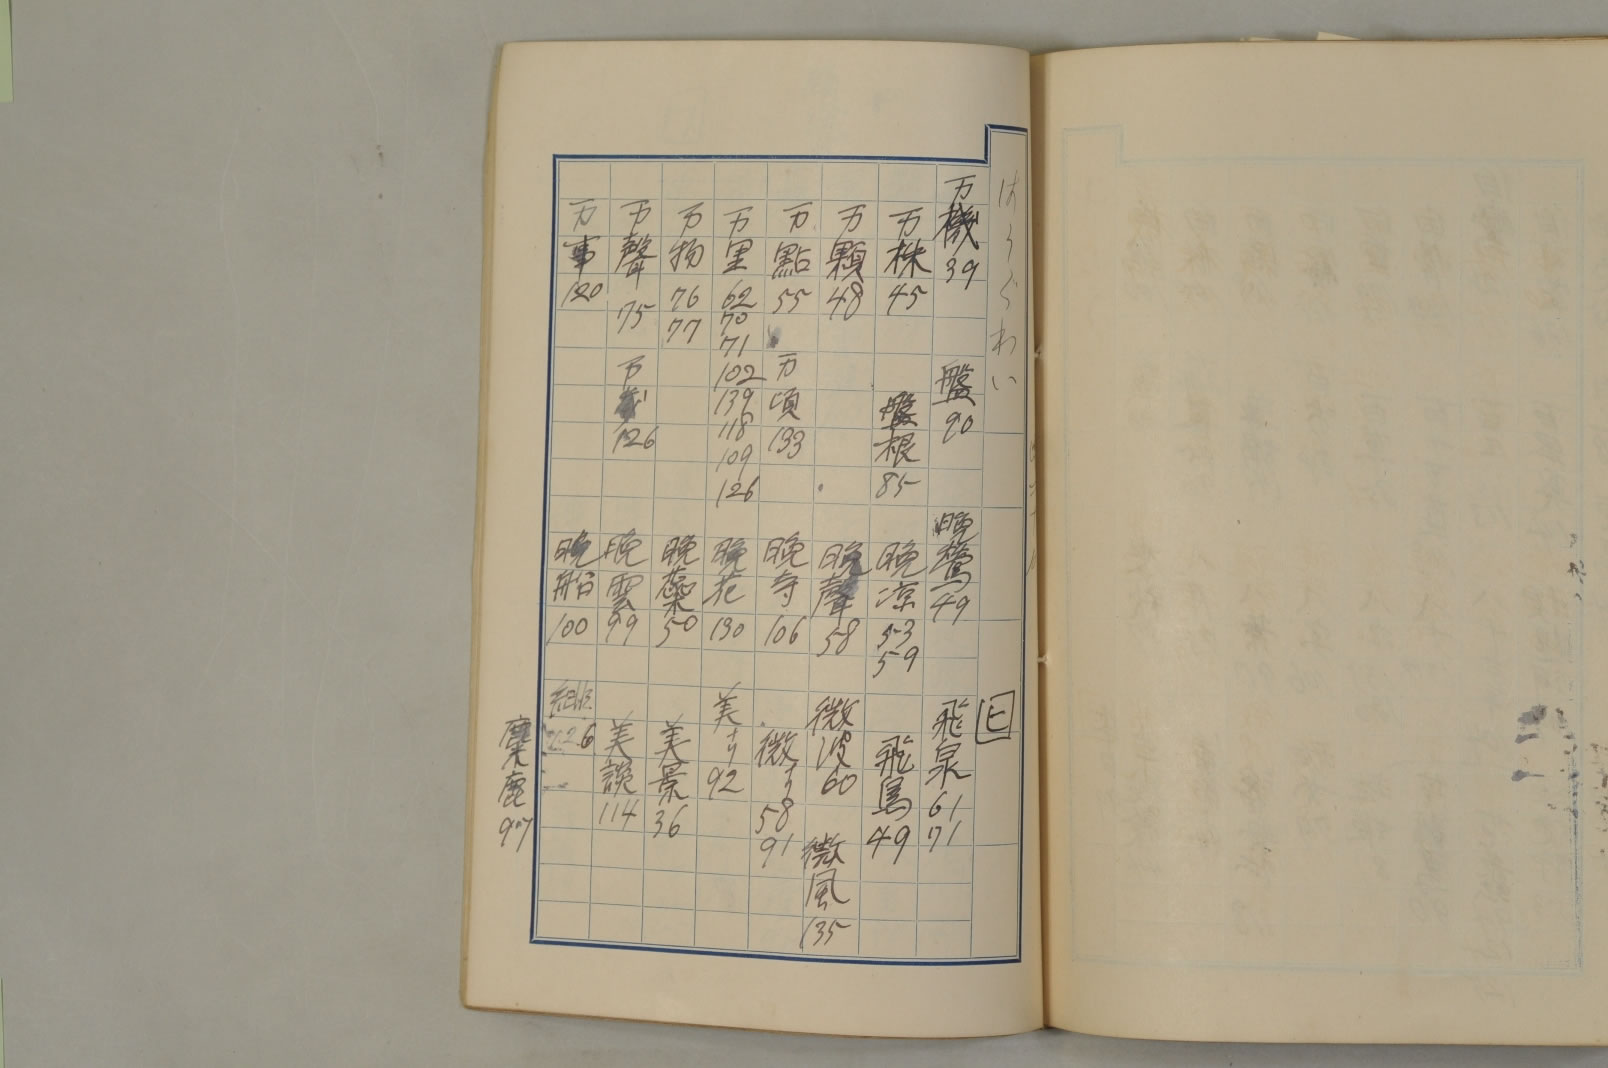 万機 39
盤 90
晩鶯 49
ヒ
飛泉 61 71
万株 45
盤根 85
晩涼 53 59
飛鳥 49
万顆 48
晩聲 58
微波 60
微風 135
万點 55
万頃 133
晩寺 106
58 91
万里 62 70 71 102 139 118 109 126
晩花 130
92
万物 76 77
晩蘂 50
美景 36
万聲 75
126
晩雲 99
美談 114
万事 120
晩船 100
126
麋鹿 97